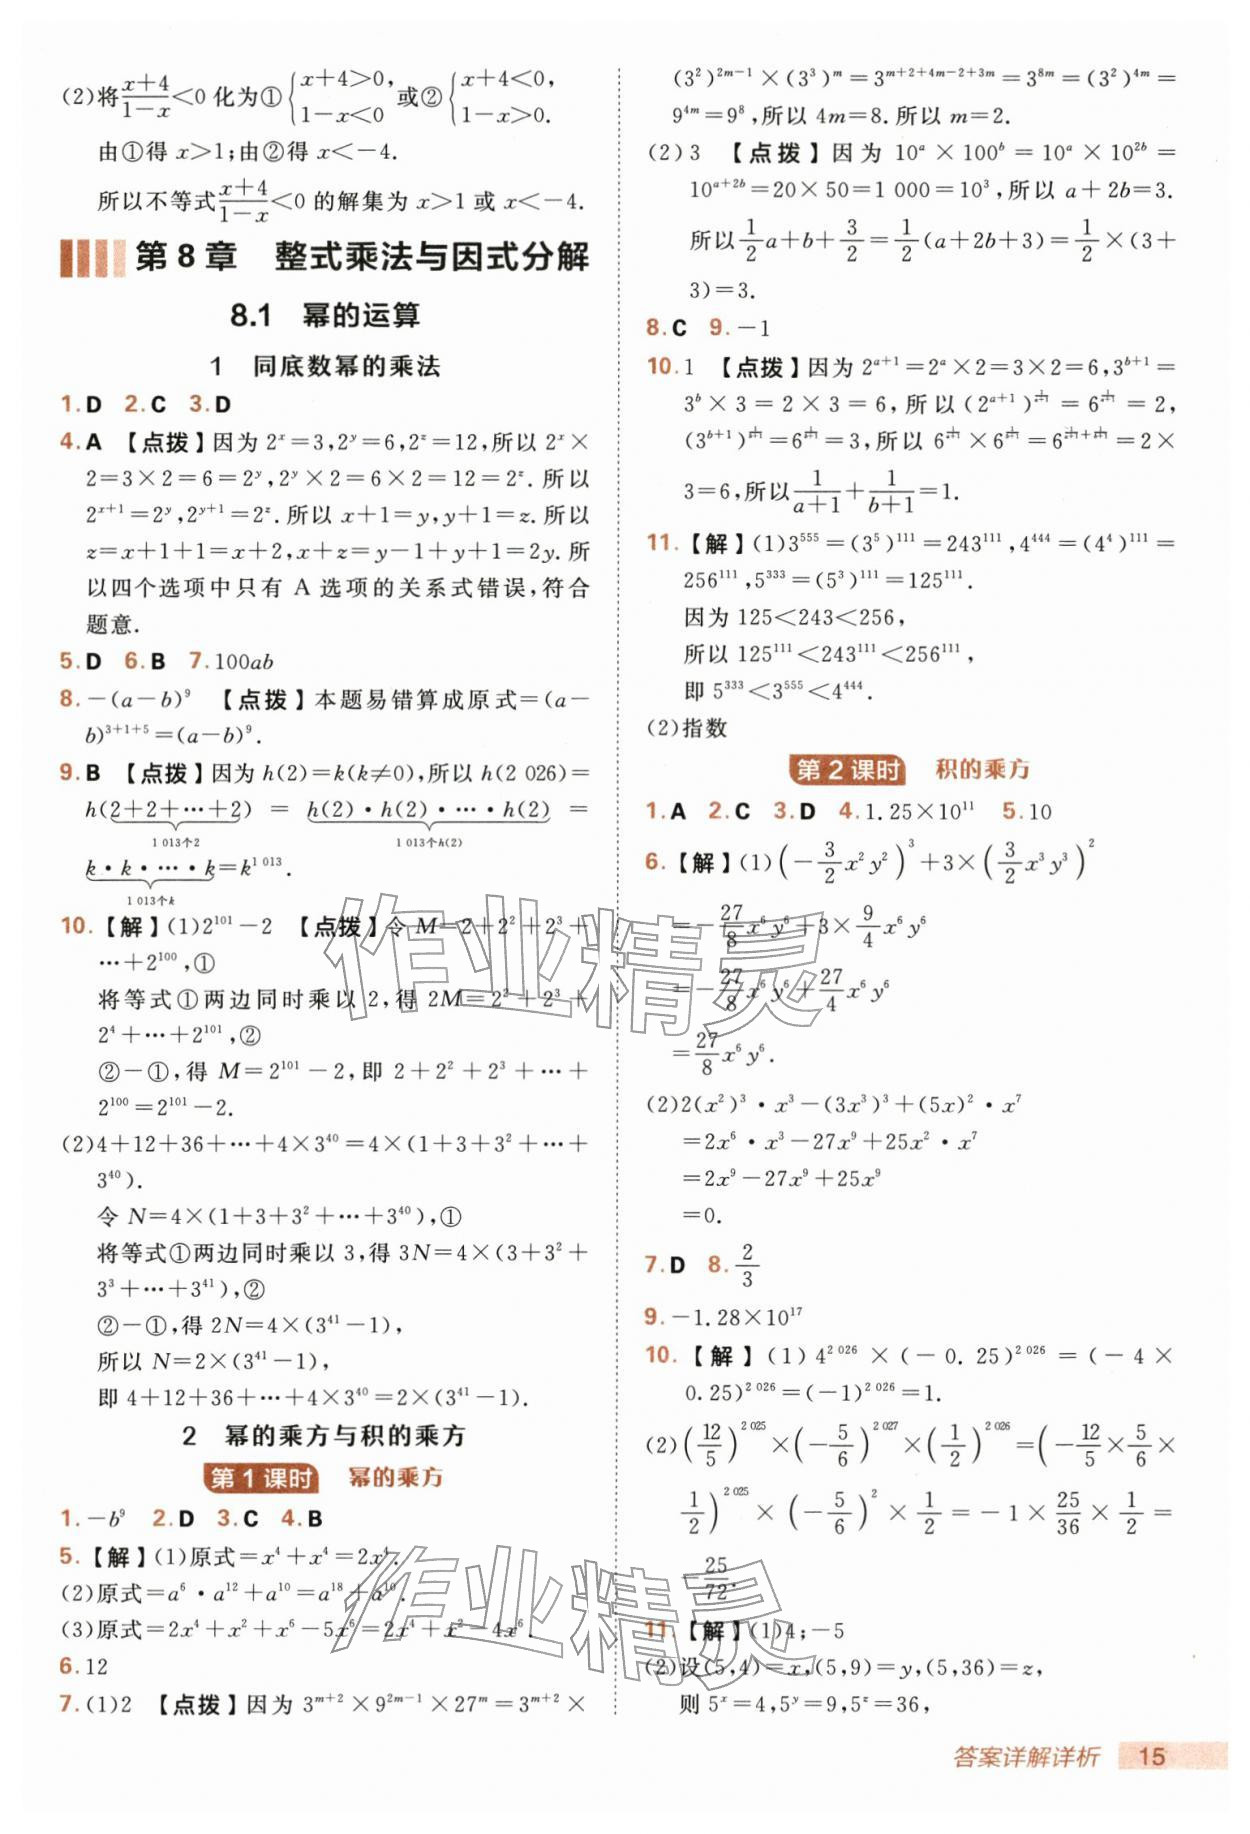 (2)将\frac{x+4}{1-x}<0 化为①{x+4>0, 1-x<0 或②{x+4<0, 1-x>0.
由①得 x>1;由②得 x<-4.
所以不等式\frac{x+4}{1-x}<0 的解集为 x>1 或 x<-4.
第 8 章 整式乘法与因式分解
8.1 幂的运算
1 同底数幂的乘法
1.D 2.C 3.D
4.A 【点拨】因为 2^x=3,2^y=6,2^z=12,所以 2^x×
2=3×2=6=2^y,2^y×2=6×2=12=2^z.所以
2^{x+1}=2^y,2^{y+1}=2^z.所以 x+1=y,y+1=z.所以
z=x+1+1=x+2,x+z=y-1+y+1=2y.所
以四个选项中只有 A 选项的关系式错误,符合
题意.
5.D 6.B 7.100ab
8.-(a-b)^9 【点拨】本题易错算成原式=(a-
b)^{3+1+5}=(a-b)^9.
9.B 【点拨】因为 h(2)=k(k≠0),所以 h(2 026)=
h(2+2+…+2) = h(2)·h(2)·…·h(2) =
1 013个2 1 013个h(2)
k·k·…·k=k^{1 013}.
1 013个k
10.【解】(1)2^{101}-2 【点拨】令 M=2+2^2+2^3+
…+2^{100},①
将等式①两边同时乘以 2,得 2M=2^2+2^3+
2^4+…+2^{101},②
②-①,得 M=2^{101}-2,即 2+2^2+2^3+…+
2^{100}=2^{101}-2.
(2)4+12+36+…+4×3^{40}=4×(1+3+3^2+…+
3^{40}).
令 N=4×(1+3+3^2+…+3^{40}),①
将等式①两边同时乘以 3,得 3N=4×(3+3^2+
3^3+…+3^{41}),②
②-①,得 2N=4×(3^{41}-1),
所以 N=2×(3^{41}-1),
即 4+12+36+…+4×3^{40}=2×(3^{41}-1).
2 幂的乘方与积的乘方
第 1 课时 幂的乘方
1.-b^9 2.D 3.C 4.B
5.【解】(1)原式=x^4+x^4=2x^4.
(2)原式=a^6·a^{12}+a^{10}=a^{18}+a^{10}.
(3)原式=2x^4+x^2+x^6-5x^6=2x^4+x^2-4x^6.
6.12
7.(1)2 【点拨】因为 3^{m+2}×9^{2m-1}×27^m=3^{m+2}×
(3^2)^{2m-1}×(3^3)^m=3^{m+2+4m-2+3m}=3^{8m}=(3^2)^{4m}=
9^{4m}=9^8,所以 4m=8.所以 m=2.
(2)3 【点拨】因为 10^a×100^b=10^a×10^{2b}=
10^{a+2b}=20×50=1 000=10^3,所以 a+2b=3.
所以\frac{1}{2}a+b+\frac{3}{2}=\frac{1}{2}(a+2b+3)=\frac{1}{2}×(3+
3)=3.
8.C 9.-1
10.1 【点拨】因为 2^{a+1}=2^a×2=3×2=6,3^{b+1}=
3^b×3=2×3=6,所以(2^{a+1})^{\frac{1}{a+1}}=6^{\frac{1}{a+1}}=2,
(3^{b+1})^{\frac{1}{b+1}}=6^{\frac{1}{b+1}}=3,所以 6^{\frac{1}{a+1}}×6^{\frac{1}{b+1}}=6^{\frac{1}{a+1}+\frac{1}{b+1}}=2×
3=6,所以\frac{1}{a+1}+\frac{1}{b+1}=1.
11.【解】(1)3^{555}=(3^5)^{111}=243^{111},4^{444}=(4^4)^{111}=
256^{111},5^{333}=(5^3)^{111}=125^{111}.
因为 125<243<256,
所以 125^{111}<243^{111}<256^{111},
即 5^{333}<3^{555}<4^{444}.
(2)指数
第 2 课时 积的乘方
1.A 2.C 3.D 4.1.25×10^{11} 5.10
6.【解】(1)(-\frac{3}{2}x^2y^2)^3+3×(\frac{3}{2}x^3y^3)^2
=-\frac{27}{8}x^6y^6+3×\frac{9}{4}x^6y^6
=-\frac{27}{8}x^6y^6+\frac{27}{4}x^6y^6
=\frac{27}{8}x^6y^6.
(2)2(x^2)^3·x^3-(3x^3)^3+(5x)^2·x^7
=2x^6·x^3-27x^9+25x^2·x^7
=2x^9-27x^9+25x^9
=0.
7.D 8.\frac{2}{3}
9.-1.28×10^{17}
10.【解】(1)4^{2 026}×(-0.25)^{2 026}=(-4×
0.25)^{2 026}=(-1)^{2 026}=1.
(2)(\frac{12}{5})^{2 025}×(-\frac{5}{6})^{2 027}×(\frac{1}{2})^{2 026}=(-\frac{12}{5}×\frac{5}{6}×
\frac{1}{2})^{2 025}×(-\frac{5}{6})^2×\frac{1}{2}=-1×\frac{25}{36}×\frac{1}{2}=
-\frac{25}{72}.
11.【解】(1)4;-5
(2)设(5,4)=x,(5,9)=y,(5,36)=z,
则 5^x=4,5^y=9,5^z=36,
作业精灵
作业精灵
答案详解详析 15